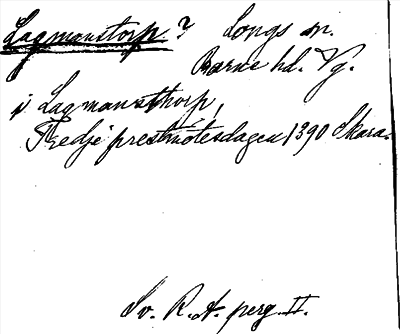 Lagmanstorp ? Longs sn.
Barne hd. Vg.
j Lagmansthorp,
Tredje prestmötesdagen 1390 Skara.
Sv. R. A. perg. II.